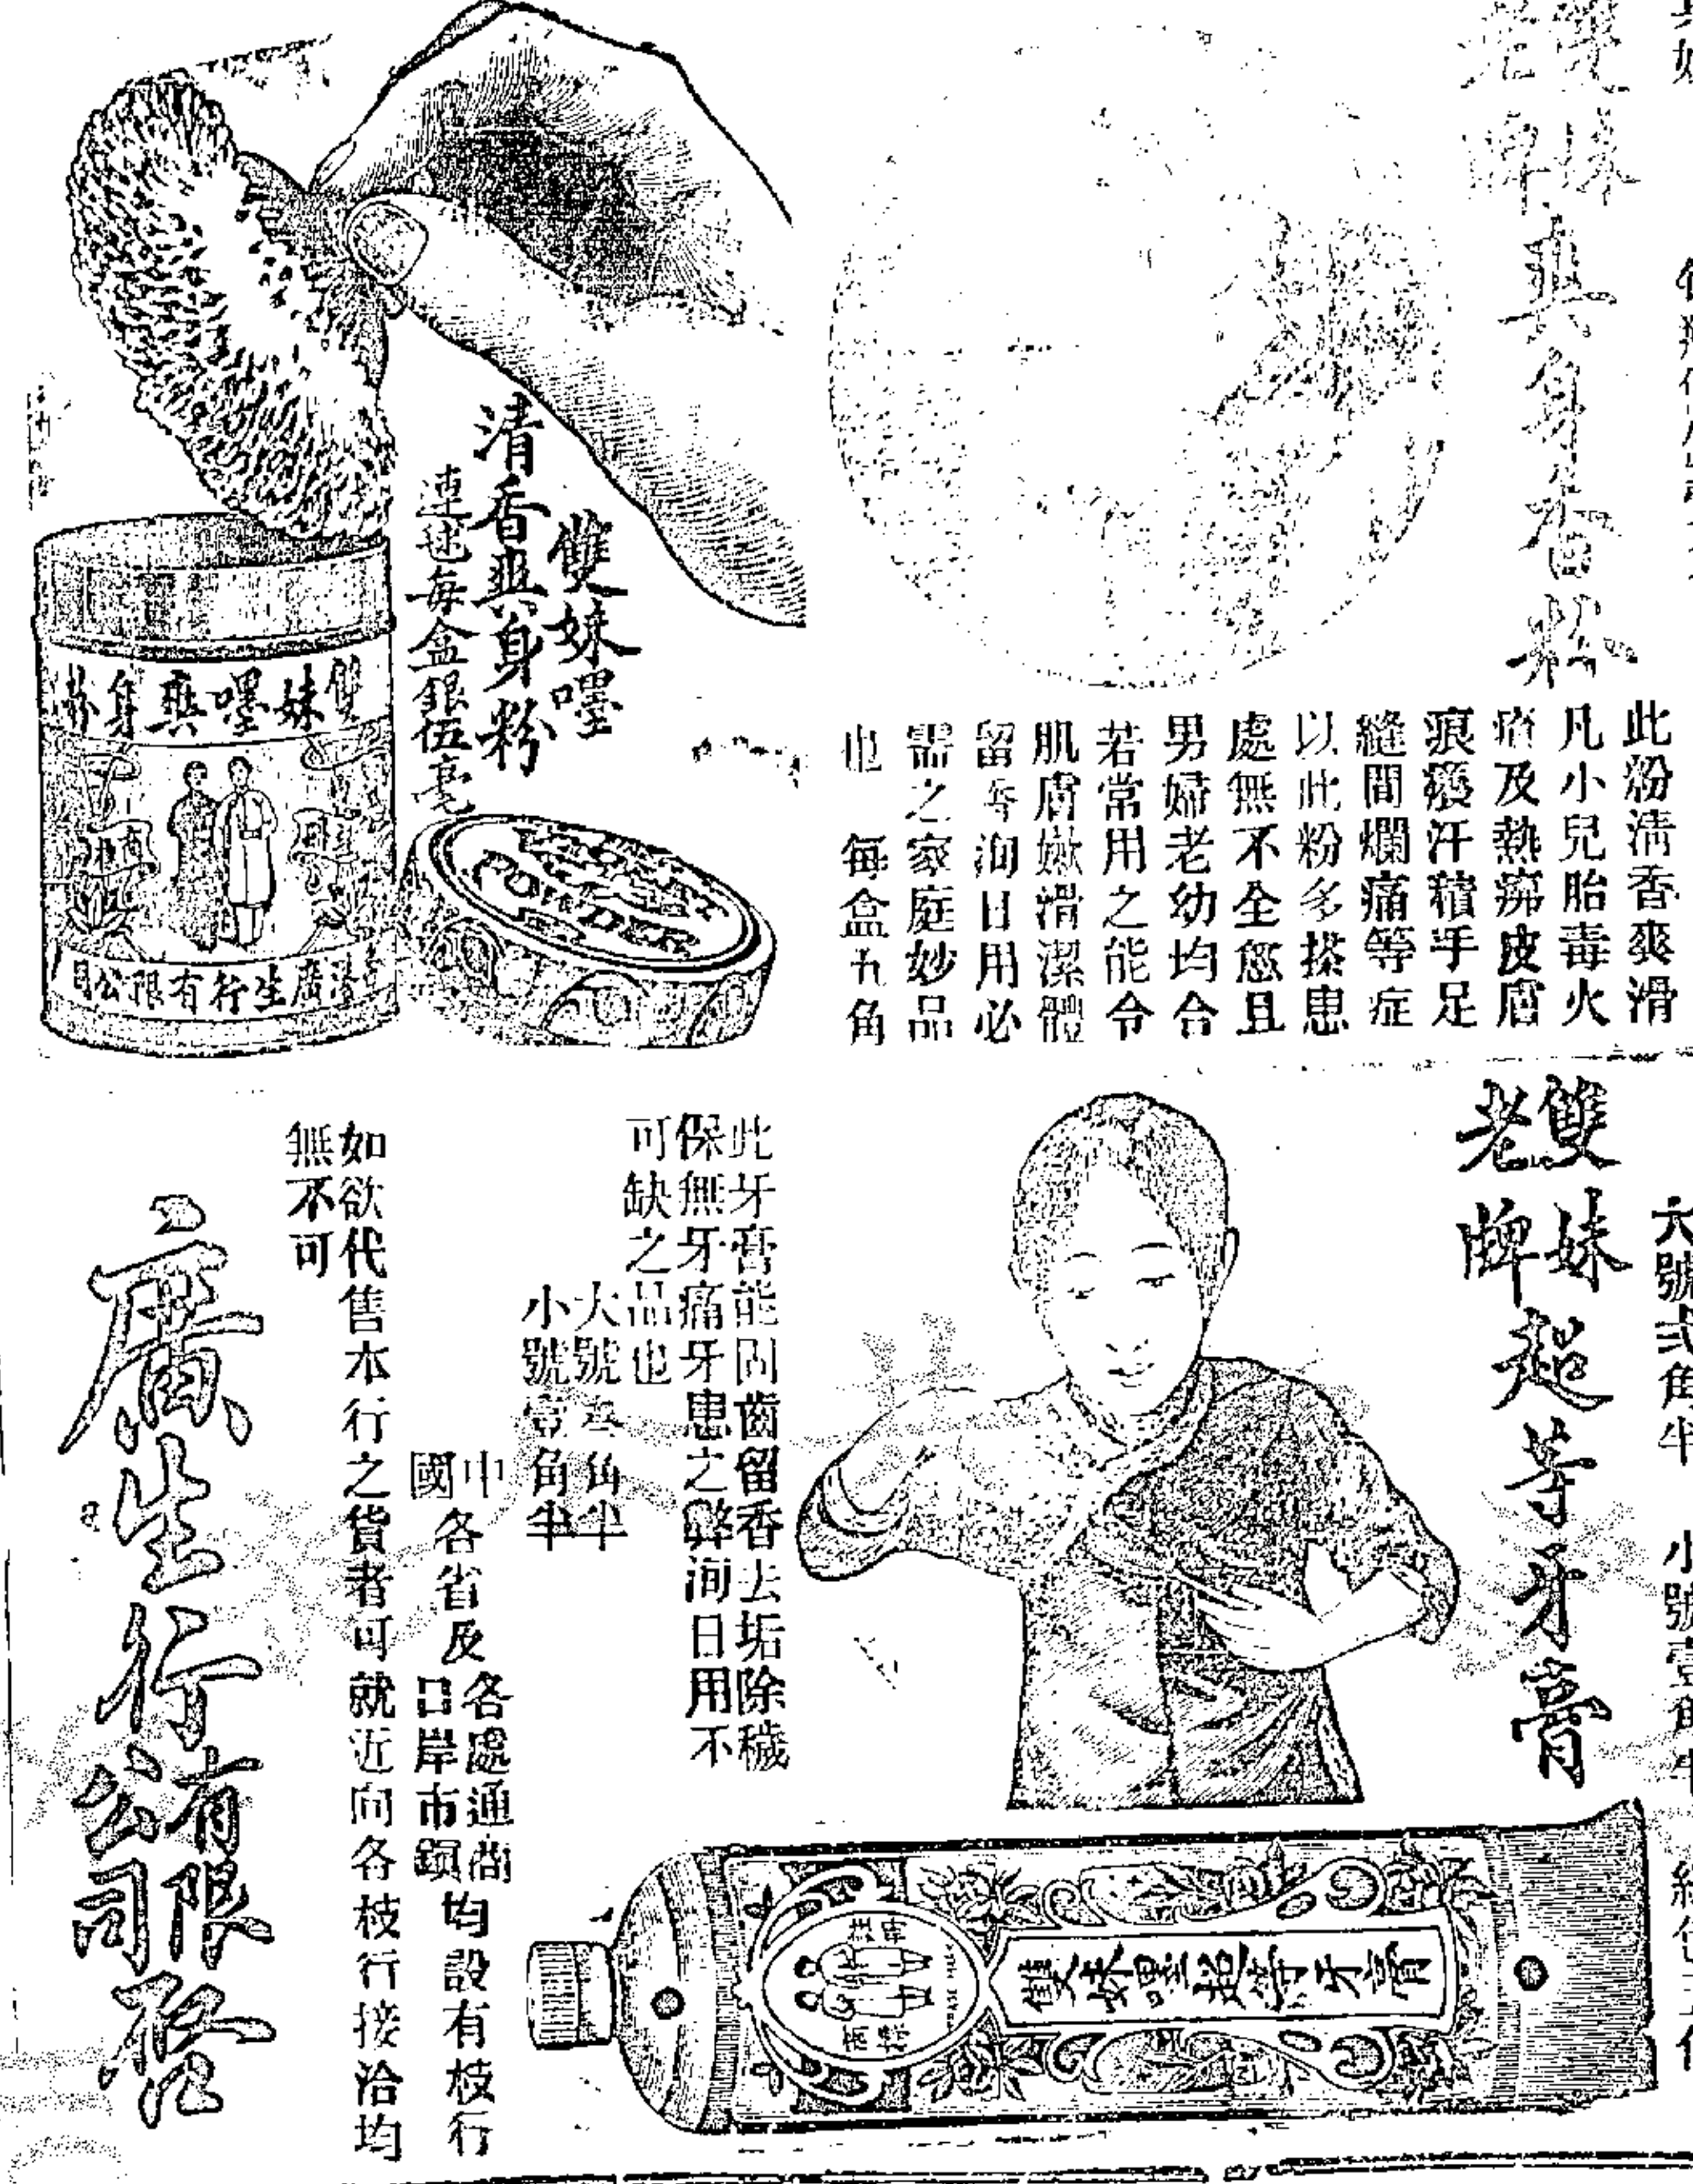 雙妹
老牌
爽身香粉
此粉清香爽滑
凡小兒胎毒火
瘡及熱痱皮膚
痕癢汗積手足
縫間爛痛等症
以此粉多搽患
處無不全愈且
男婦老幼均合
若常用之能令
肌膚嫩滑潔體
留香洵日用必
需之家庭妙品
也 每盒五角
雙妹嚜
清香爽身粉
連毬每盒銀伍毫
雙妹嚜爽身粉
廣生行有限公司
POWDER
大號弍角半 小號壹角半
雙妹
老牌
超等牙膏
此牙膏能固齒留香去垢除穢
保無牙痛牙患之弊洵日用不
可缺之品也
大號叁角半
小號壹角半
中國各省及各處通商口岸市鎮均設有枝行
如欲代售本行之貨者可就近向各枝行接洽均
無不可
廣生行有限公司啓
雙妹嚜超等牙膏
TRADE MARK